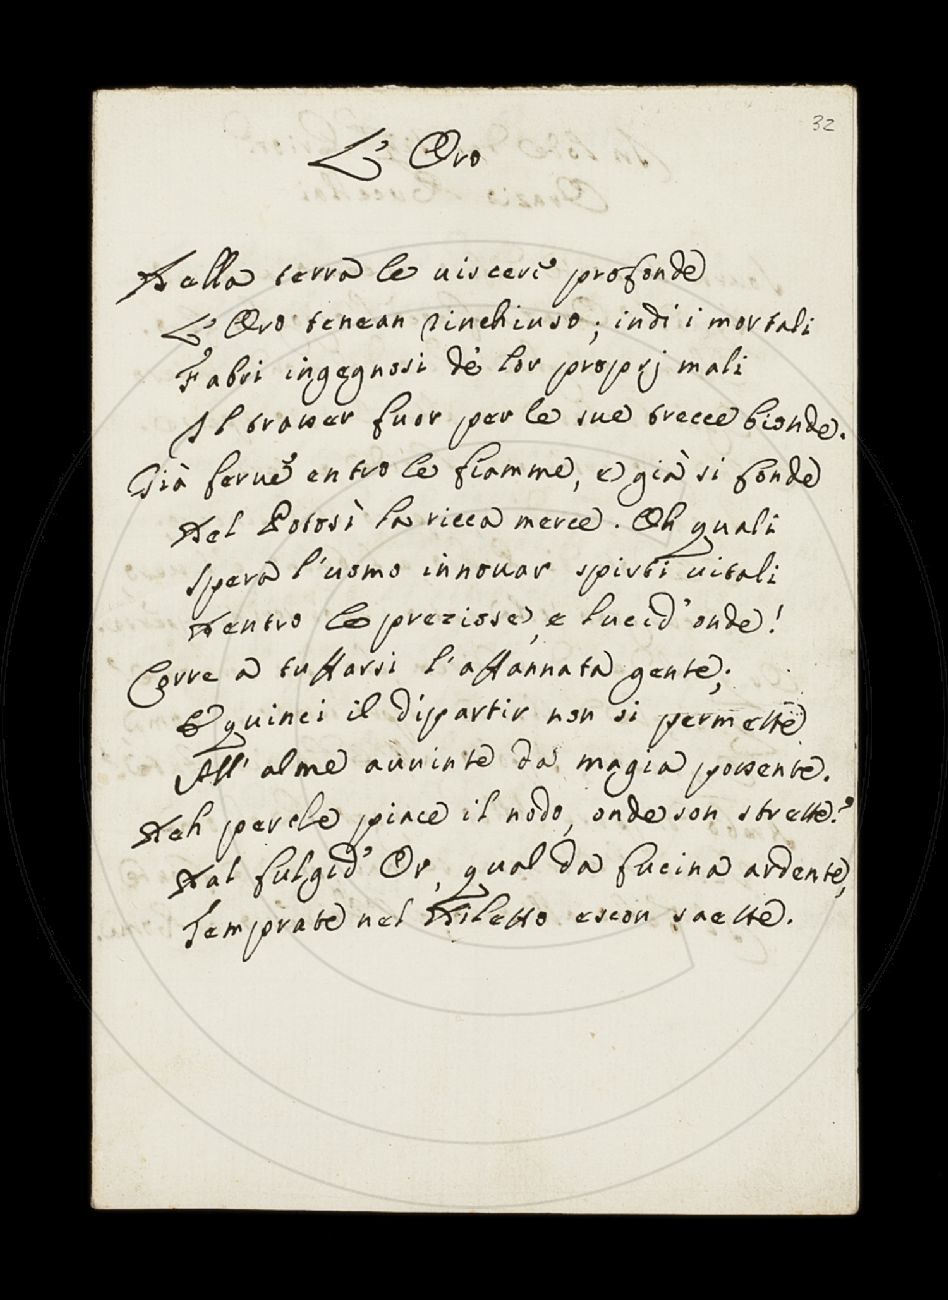 32
L' Oro
Della terra le visceri profonde
L' Oro tenean rinchiuso; indi i mortali
Fabri ingegnosi de' lor proprj mali
Il trasser fuor per le sue trecce bionde.
Già ferve entro le fiamme, e già si fonde
Del Potosì la ricca merce. Oh quali
Spera l'uomo innovar spirti vitali
Dentro le preziose, e lucid' onde!
Corre a tuffarsi l'affannata gente;
E quinci il dipartir non si permette
All' alme avvinte da magia possente.
Deh perché piace il nodo, onde son strette?
Dal fulgid' Or, qual da fucina ardente,
Temprate nel Diletto escon saette.